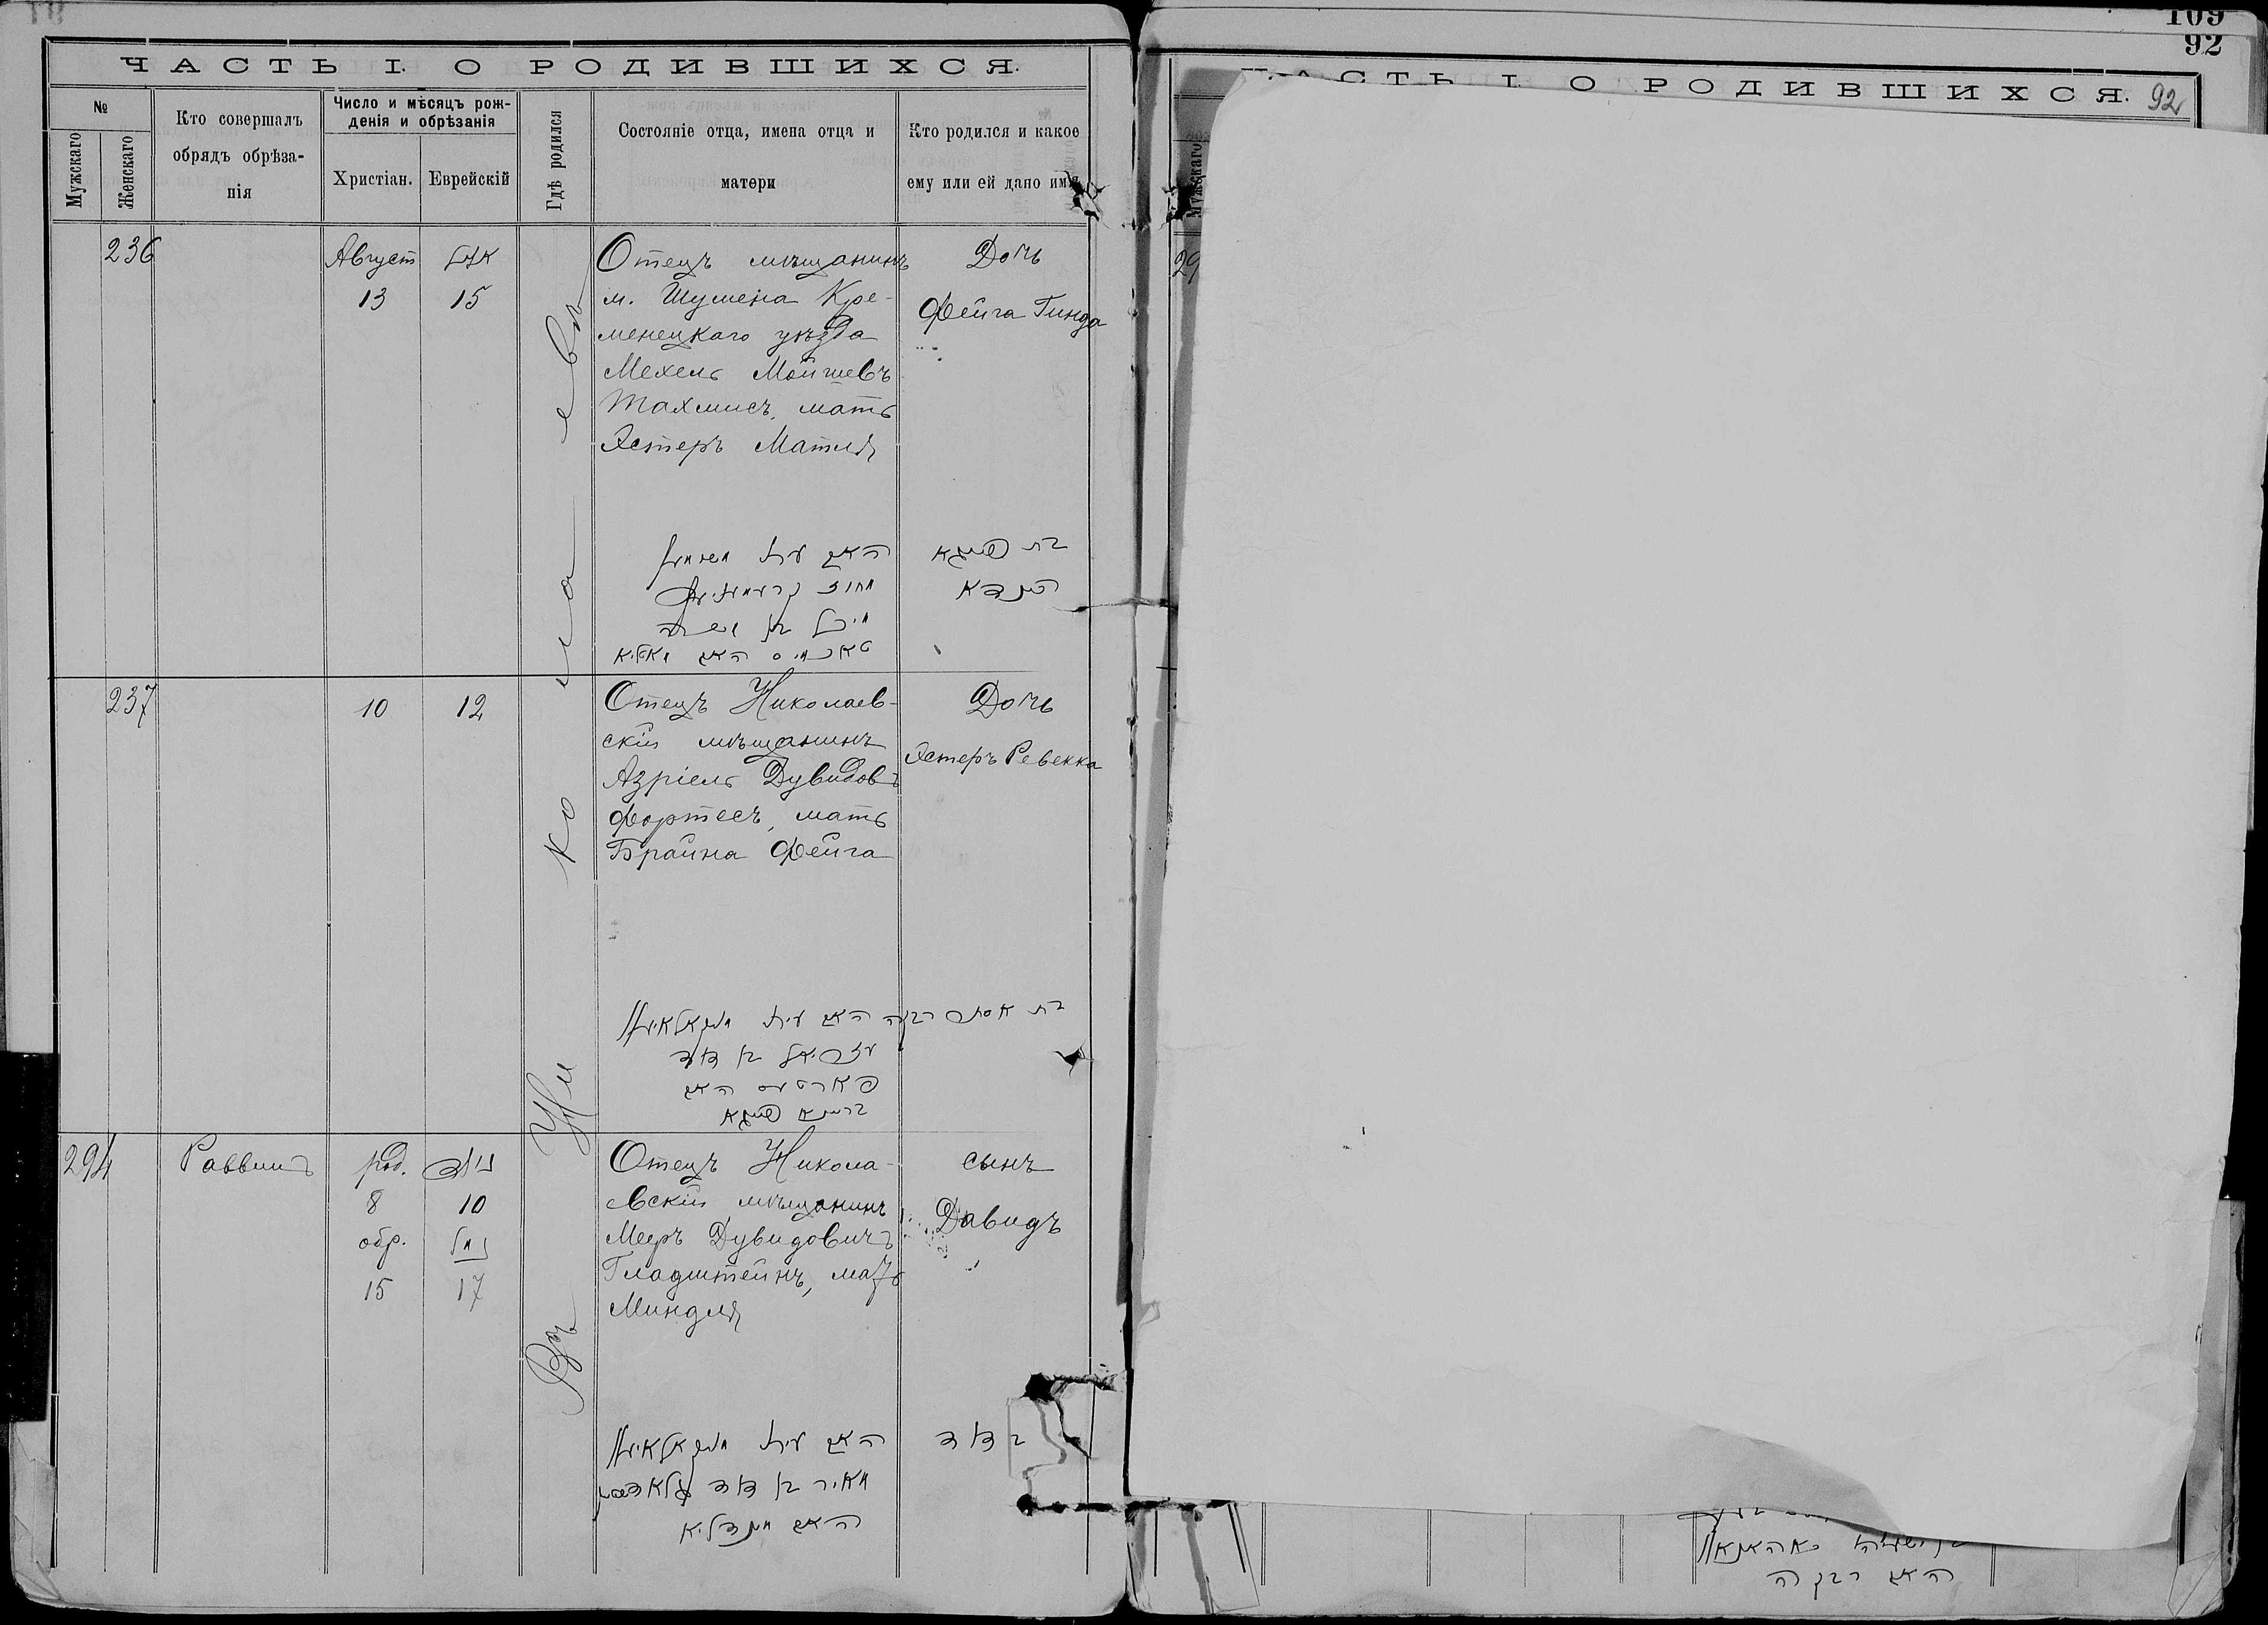 109
92
ЧАСТЬ I. О РОДИВШИХСЯ.
№
Мужскаго
Женскаго
Кто совершалъ
обрядъ обрѣза-
нія
Число и мѣсяцъ рож-
денія и обрѣзанія
Христіан.
Еврейскій
Гдѣ родился
Состояніе отца, имена отца и
матери
Кто родился и какое
ему или ей дано имя
Въ Николаевѣ
236
Август
13
15
Отецъ мѣщанинъ
м. Шумска Кре-
менецкаго уѣзда
Мехель Мойшевъ
Тахмисъ, мать
Эстеръ Матля
Дочь
Фейга Гинда
בת פייגא
הינדא
237
10
12
Отецъ Николаев-
скій мѣщанинъ
Азріель Дувидовъ
Фортесъ, мать
Брайна Фейга
Дочь
Эстеръ Ревекка
עזריאל בן דוד
פארטעס האם
בריינא פייגא
294
Раввинъ
род.
8
10
обр.
15
17
Отецъ Никола-
евскій мѣщанинъ
Мееръ Дувидовичъ
Гладштейнъ, мать
Миндля
сынъ
Давидъ
מאיר בן דוד
האם מינדליא
דוד
ЧАСТЬ I. О РОДИВШИХСЯ.
92
Мужскаго
29
האם רבקה